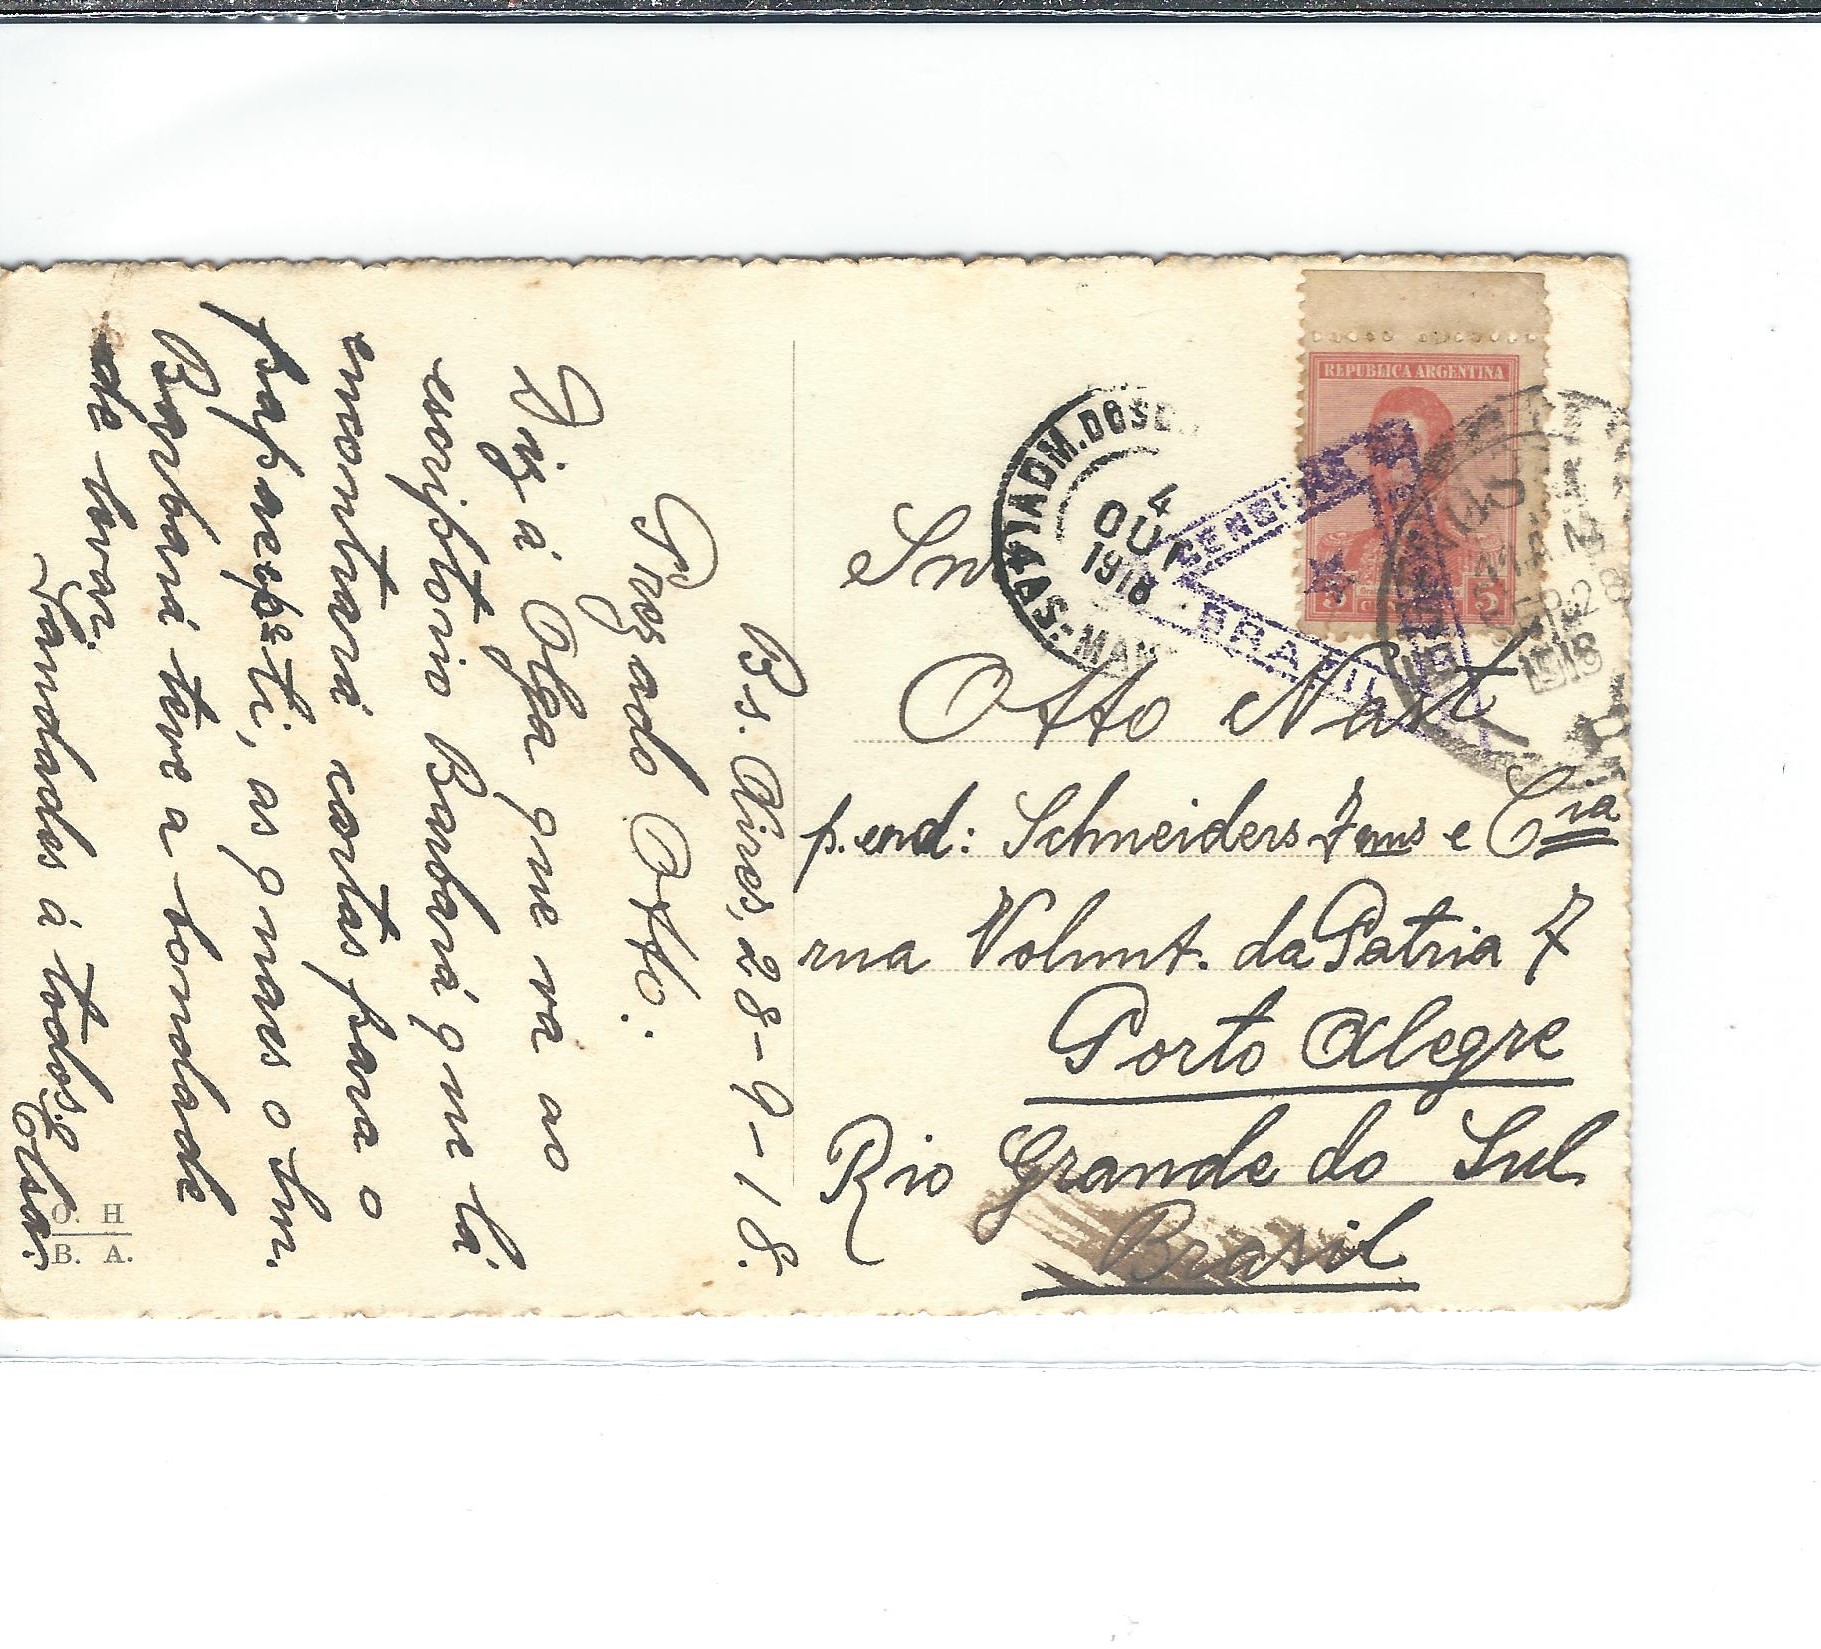 Bs. Aires, 28-9-18.
Prezado Otto:
Diz á Olga que vá ao
escriptorio Barbará que lá
encontrará cartas para o
e ti, as quaes o Snr.
Barbará teve a bondade
de levar.
Saudades à todos.
Elsa.
O. H
B. A.
REPUBLICA ARGENTINA
5
5
ADM. DOS
4
OUT
1918
CENSURA
BRAZIL
SEP. 28
1918
Snr
Otto Nast
p. end: Schneiders Irms e Cia
rua Volunt. da Patria 7
Porto Alegre
Rio Grande do Sul
Brasil